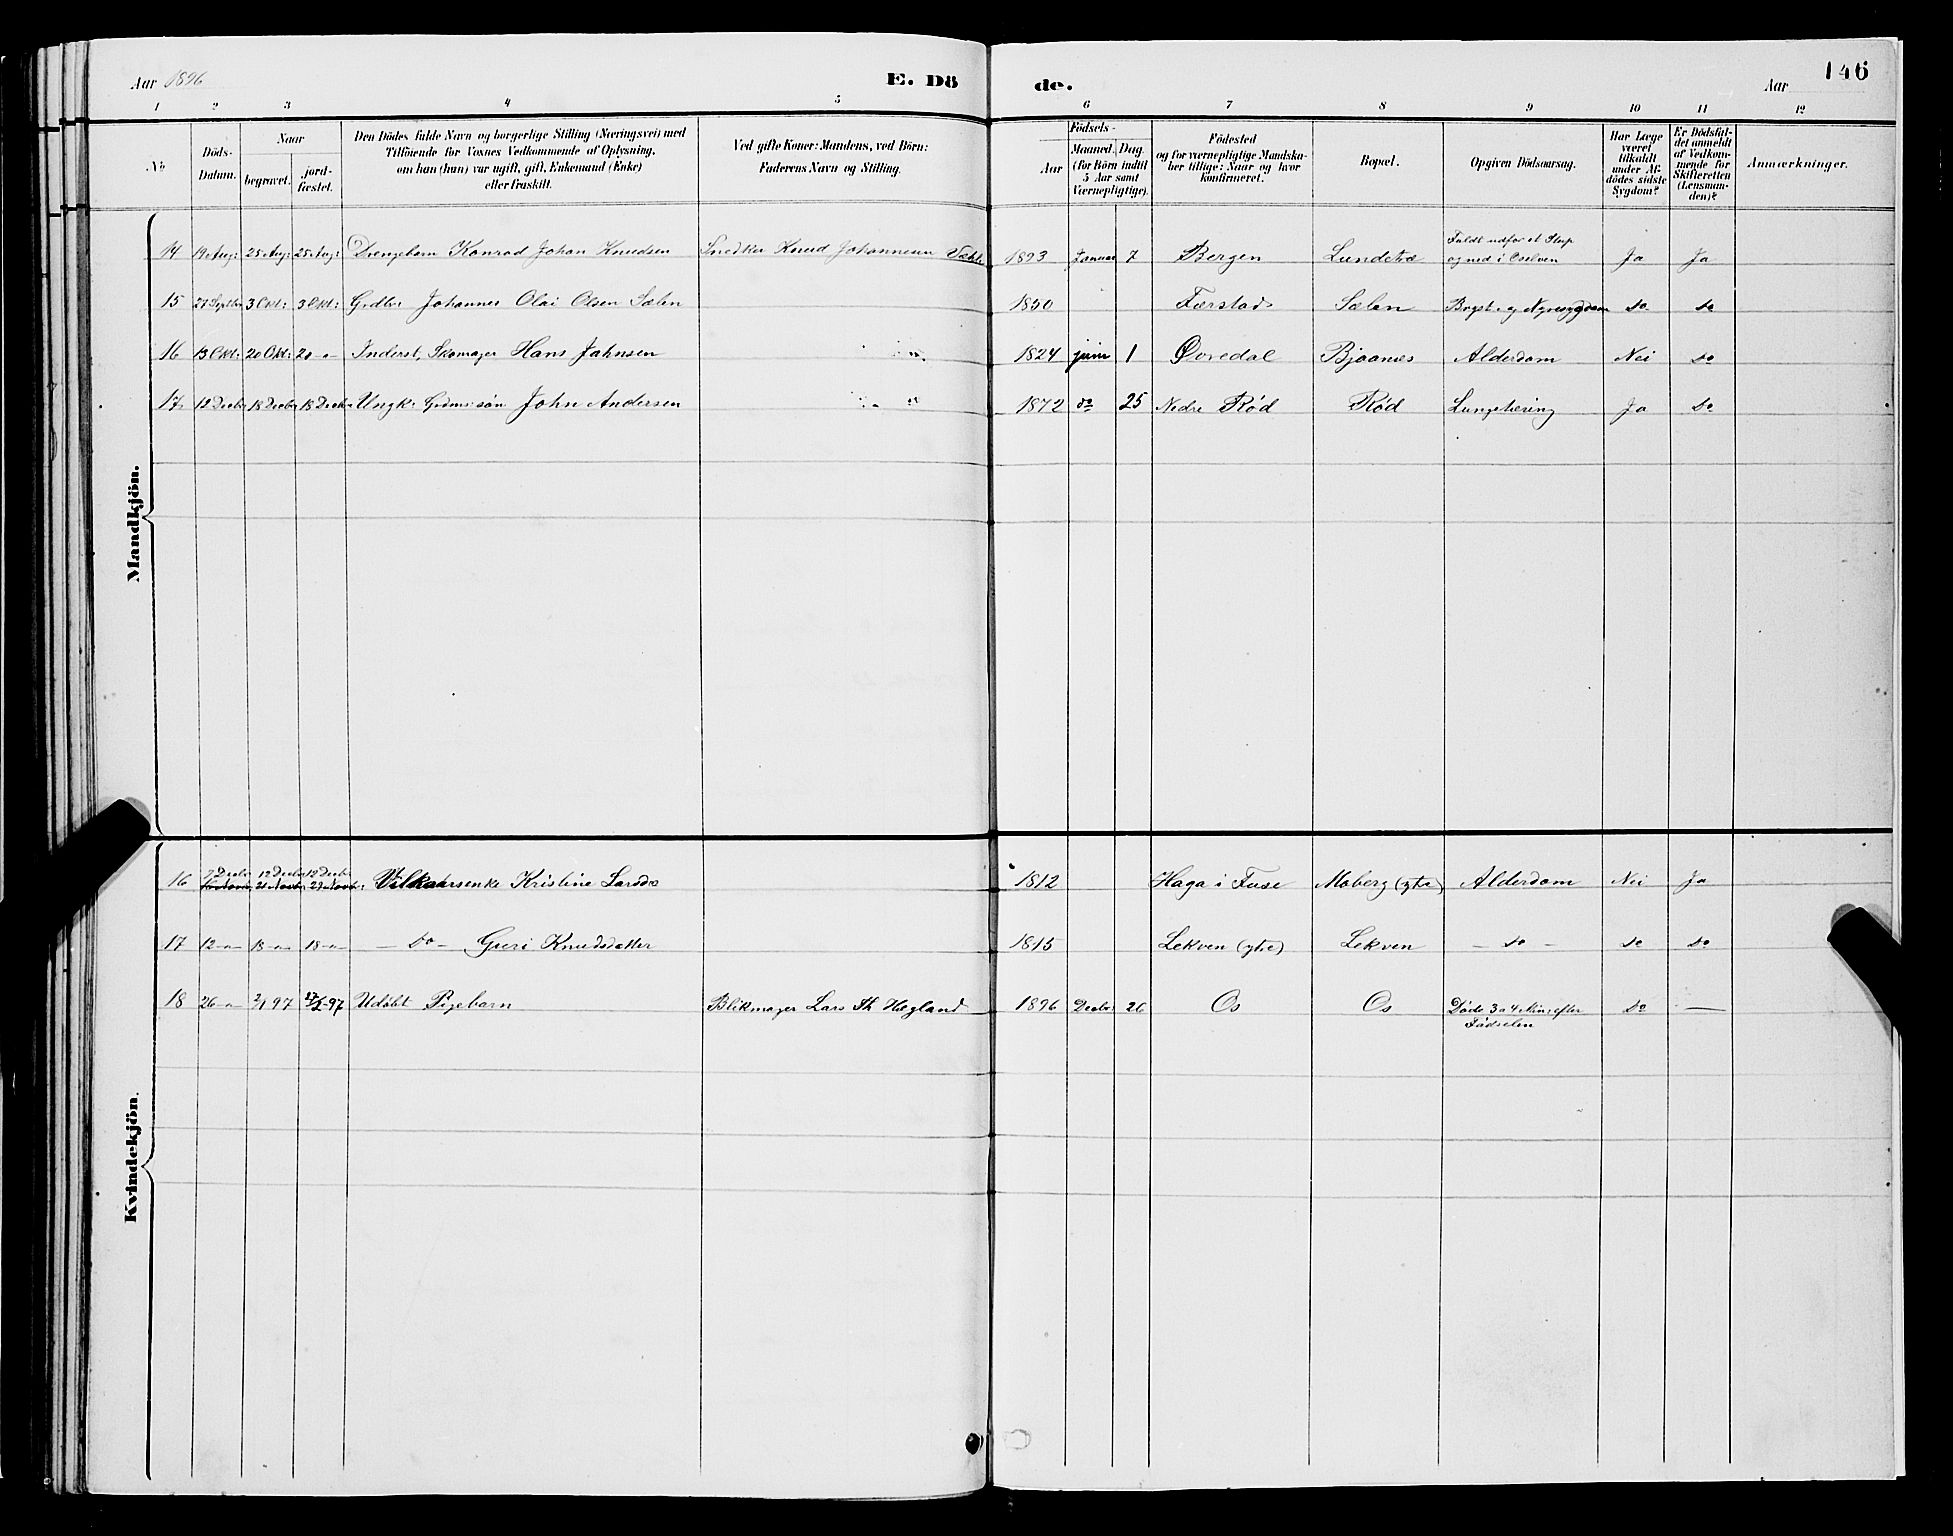 Aar 1896
E. Dö
de.
Aar
146
1 2 3 4 5 6 7 8 9 10 11 12
No
Döds-
Datum.
Naar
begravet.
jord-
fæstet.
Den Dödes fulde Navn og borgerlige Stilling (Næringsvei) med
Tilföiende for Voxnes Vedkommende af Oplysning,
om han (hun) var ugift, gift, Enkemand (Enke)
eller fraskilt.
Ved gifte Koner: Mandens, ved Börn:
Faderens Navn og Stilling.
Födsels-
Aar
Maaned. Dag.
(for Börn indtil
5 Aar samt
Værnepligtige).
Födested
og for værnepligtige Mandska-
ber tillige: Naar og hvor
konfirmeret.
Bopæl.
Opgiven Dödsaarsag.
Har Læge
været
tilkaldt
under Af-
dödes sidste
Sygdom?
Er Dödsfal-
det anmeldt
af Vedkom-
mende for
Skifteretten
(Lensman-
den)?
Anmærkninger.
Mandkjön.
14 19 Aug: 25 Aug: 25 Aug: Drengebarn Konrad Johan Knudsen Snedker Knud Johannesen 1893 Januar 7 Bergen Lundetræ Faldt udfor et Stup
og ned i Oselven Ja Ja
15 27 Septbr 3 Okt: 3 Okt: Grdbr Johannes Olai Olsen Sælen 1850 Færstad Sælen Bryst- og Nyresygdom do do
16 13 Okt: 20 Okt: 20 -"- Inderst, Skomager Hans Jahnsen 1824 juni 1 Øvredal Bjaanes Alderdom Nei do
17 12 Decbr 18 Decbr 18 Decbr Ungk: Grdms: søn John Andersen 1872 do 25 Nedre Rød Rød Lungetæring Ja do
Kvindekjön.
16 7 Decbr 12 Decbr 12 Decbr Vilkaarsenke Kristine Larsdr 1812 Haga i Fuse Moberg (ytre) Alderdom Nei Ja
17 12 -"- 18 -"- 18 -"- - do - Guri Knudsdatter 1815 Lekven (ytre) Lekven - do - do do
18 26 -"- 2/1 97 Udøbt Pigebarn Blikmager Lars Th Hægland 1896 Decbr 26 Os Os Døde 3 a 4 Min: efter
Fødselen do —